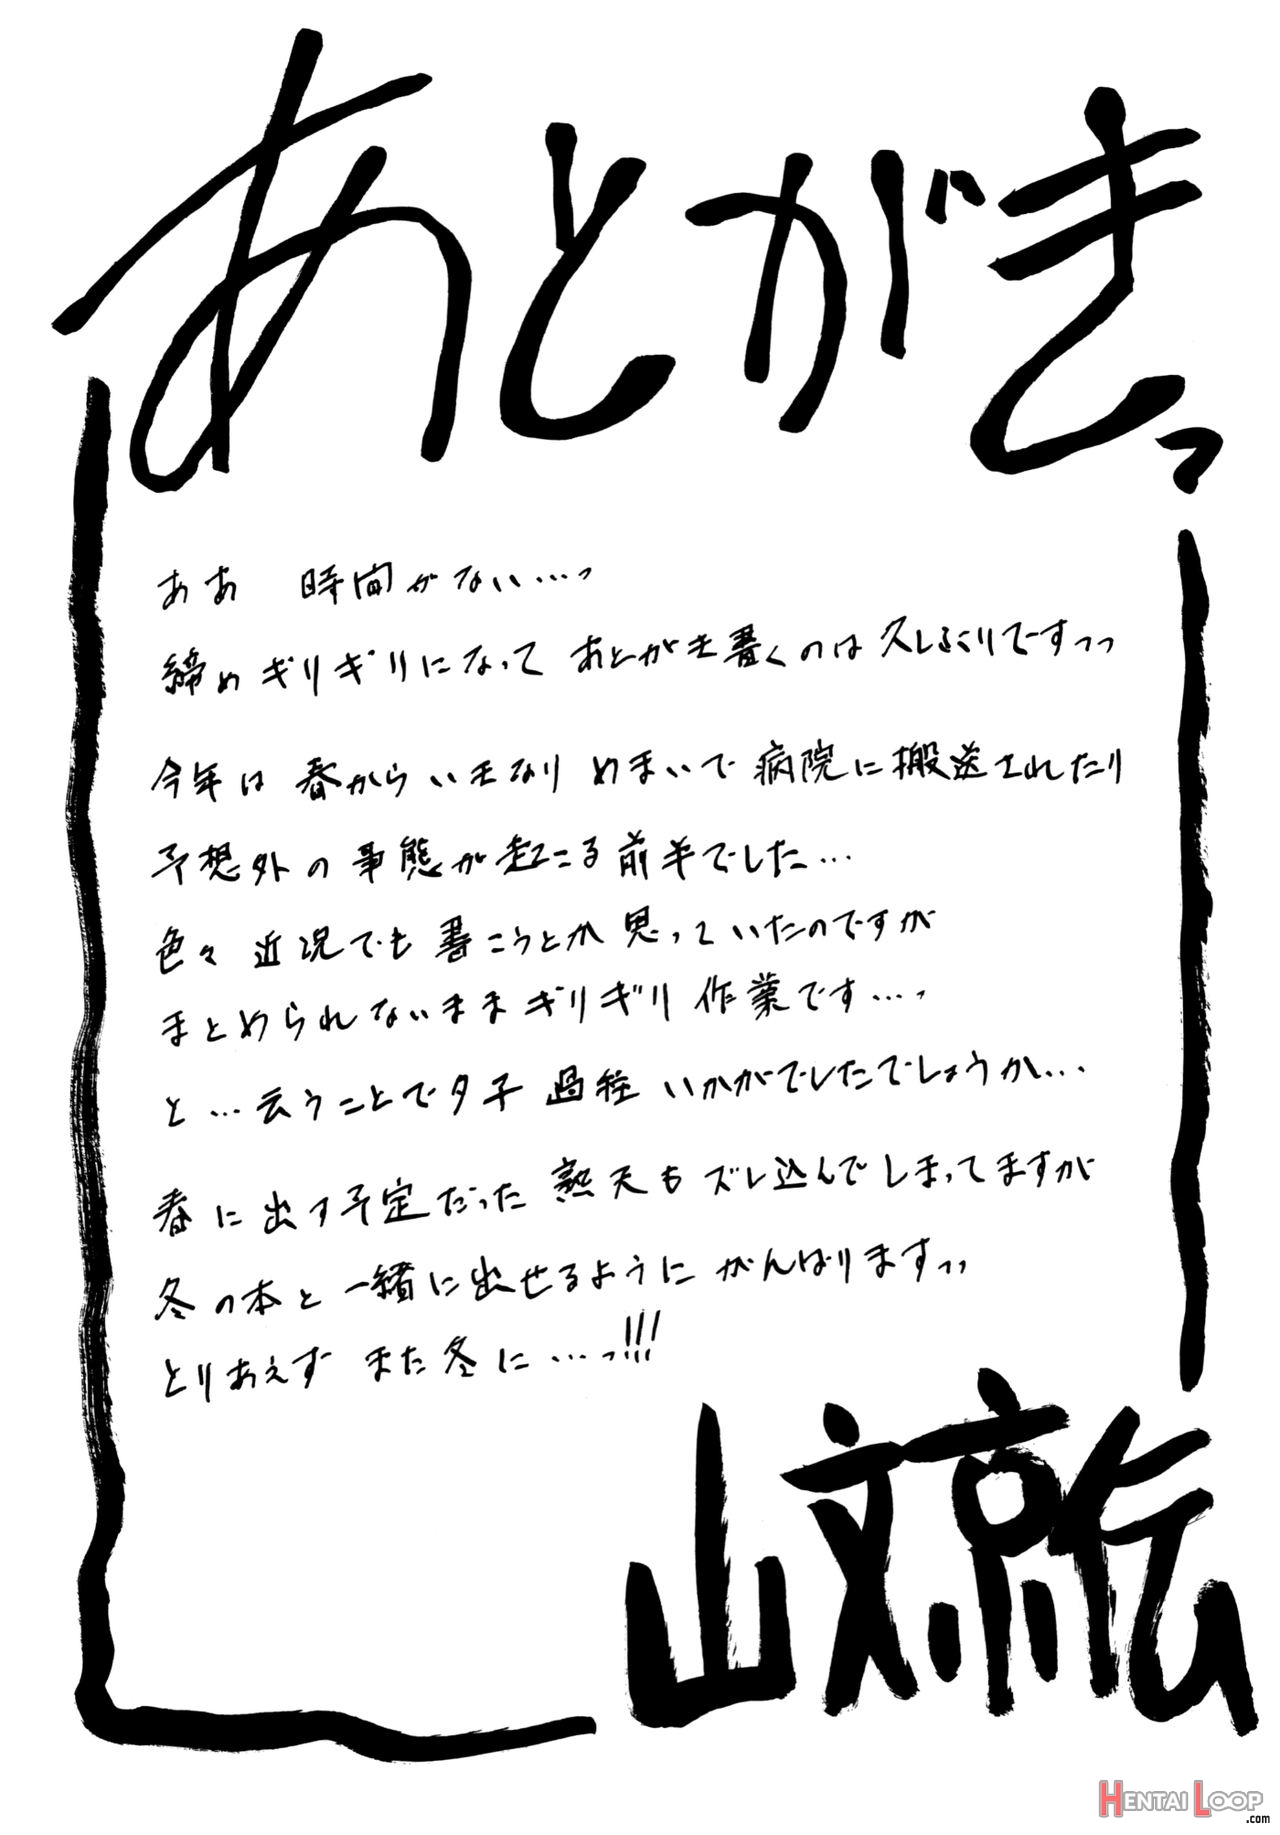 あとがきっ
ああ 時間がない…っ
締めギリギリになって あとがき書くのは 久しぶりですっっ
今年は 春から いきなり めまいで 病院に搬送されたり
予想外の 事態が起こる前半でした…
色々 近況でも 書こうとか 思っていたのですが
まとめられないまま ギリギリ 作業です…っ
と…云うことで夕子 過程 いかがでしたでしょうか…
春に出す予定だった 熟天も ズレ込んでしまってますが
冬の本と 一緒に出せるように がんばりますっっ
とりあえず また冬に…っ!!!
山文京伝
HENTAI LOOP
.com